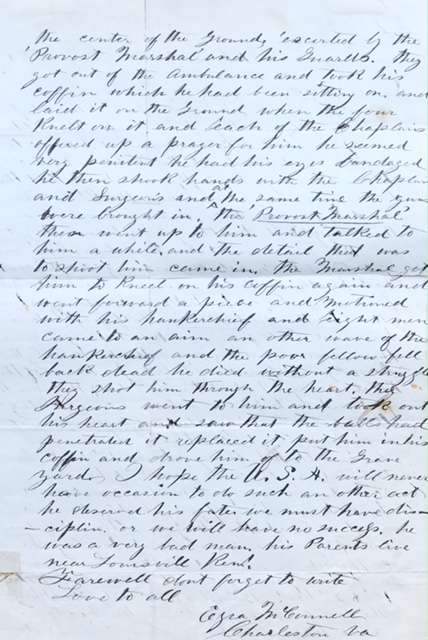 the center of the Ground, escorted by the
'Provost Marshal' and his Guards. they
got out of the Ambulance and took his
coffin which he had been sitting on, and
laid it on the Ground when the four
knelt on it, and each of the Chaplains
offered up a prayer for him he seemed
very penitent he had his eyes bandaged
he then shook hands with the Chaplin
and Surgeons and at the same time the guns
were brought in, the 'Provost Marshal'
then went up to him and talked to
him a while, and the detail that was
to shoot him came in, the Marshal got
him to kneel on his coffin again and
went forward a piece and motined
with his hankerchief and eight men
came to an aim an other wave of the
hankerchief and the poor fellow fell
back dead he died without a struggle
they shot him through the heart, the
Surgeons went to him and took out
his heart and saw that the balls had
penetrated it replaced it put him in his
coffin and drove him of to the Grave
yard, I hope the U. S. A. will never
have occasion to do such an other act
he deserved his fate, we must have dis-
-ciplin, or we will have no success, he
was a very bad man, his Parents live
near Louisvill Ken.
Farewell dont forget to write
Love to all
Ezra McConnell
Charleston Va